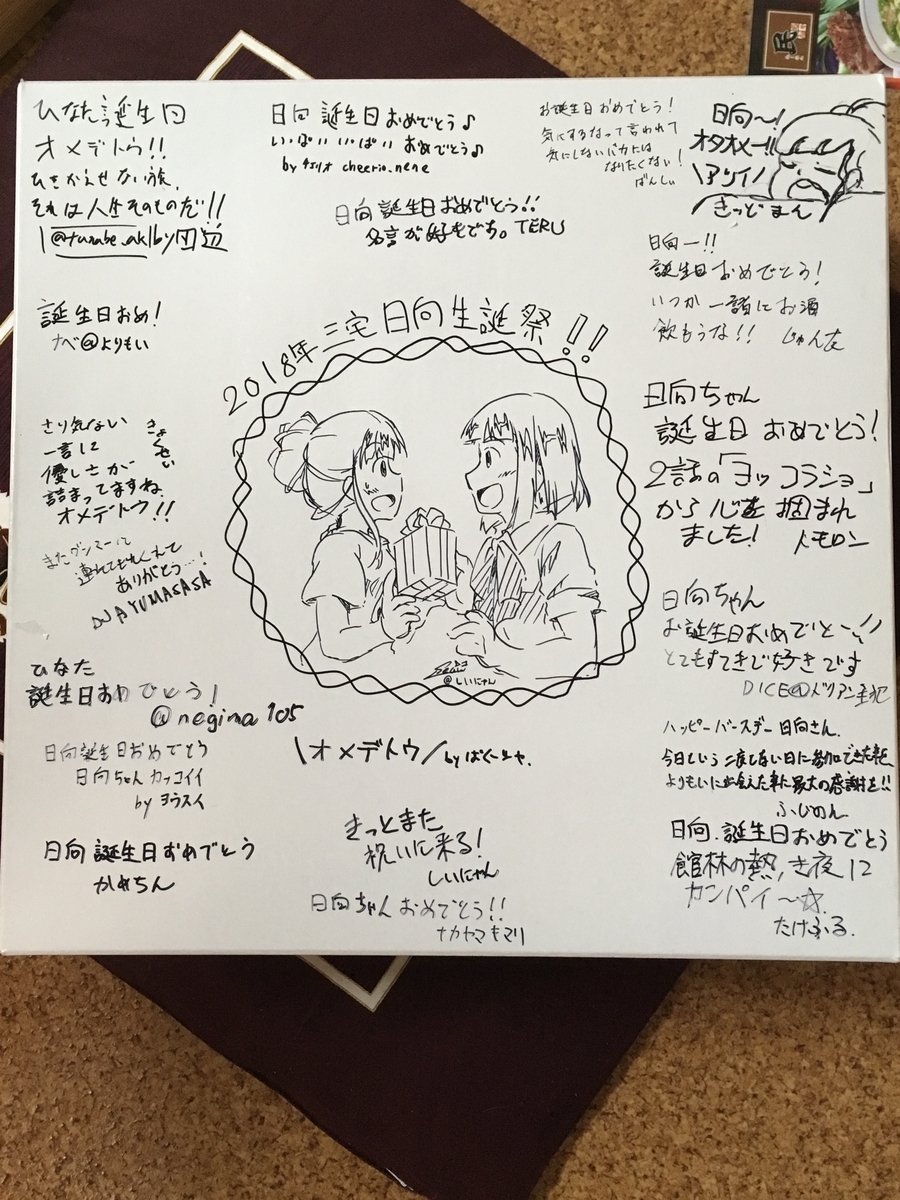 ひなた誕生日
オメデトウ!!
ひきかえせない旅、
それは人生そのものだ!!
by 田辺
日向 誕生日おめでとう♪
いっぱいいっぱい おめでとう♪
by チェリオ cheerio.nene
日向 誕生日おめでとう!!
名言が好きです。TERU
お誕生日おめでとう!
気にするなって言われて
気にしないバカには
なりたくない!
ばんしぃ
日向〜!
オタオメー!!
\アツイ/
きっどまん
日向ー!!
誕生日おめでとう!
いつか一緒にお酒
飲もうな!! じゅんな
誕生日おめ!
ナベ@よりもい
2018年 三宅日向生誕祭!!
@しいにゃん
日向ちゃん
誕生日 おめでとう!
2話の「ヨッコラショ」
から心を掴まれ
ました! トモロン
さり気ない
一言に
優しさが
詰まってますね
オメデトウ!!
またグンマーに
連れてってくれて
ありがとう…!
DJ AYUMASASA
日向ちゃん
お誕生日おめでとー!!
とてもすてきで好きです
DICE@ドリアン主犯
ひなた
誕生日おめでとう!
@negima105
\オメデトウ/
ハッピーバースデー日向さん。
今日という二度としない日に参加できた事を、
よりもいに出会えた事に最大の感謝を!!
ふじめん
日向誕生日おめでとう
日向ちゃんカッコイイ
by ヨウスイ
日向 誕生日おめでとう
かめちん
きっとまた
祝いに来る!
しいにゃん
日向ちゃんおめでとう!!
ナカヤマキマリ
日向、誕生日おめでとう
館林の熱き夜に
カンパイ〜☆
たけふる.